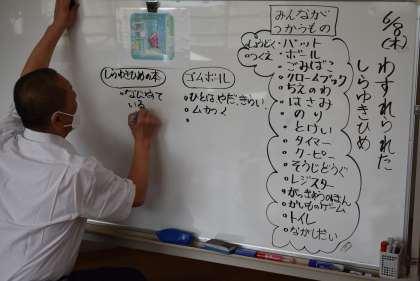 6/8(木)
わすれられた
しらゆきひめ
みんなが
つかうもの
しょうどく・バット
つくえ・ボール
・ごみばこ
・クロームブック
・ちえのわ
・はさみ
・のり
・とけい
・タイマー
・クーピー
・そうじどうぐ
・レジスター
・がっきゅうのほん
・かいものゲーム
・トイレ
・ながしだい
ゴムボール
・ひとはやだ、きらい
・ムカつく
・
しらゆきひめの本
・なにやて
いる